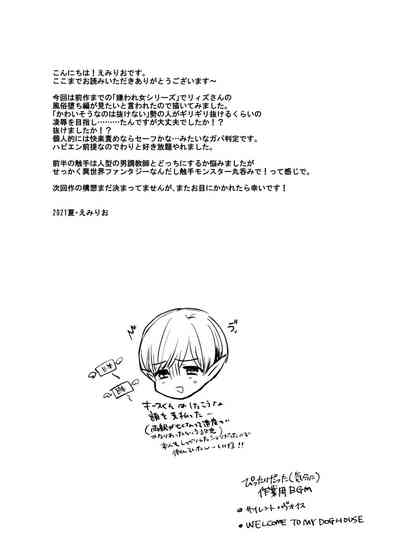 こんにちは！えみりおです。
ここまでお読みいただきありがとうございます～
今回は前作までの「嫌われ女シリーズ」でリィズさんの
風俗堕ち編が見たいと言われたので描いてみました。
「かわいそうなのは抜けない」勢の人がギリギリ抜けるくらいの
凌辱を目指し………たんですが大丈夫でしたか！？
抜けましたか！？
個人的には快楽責めならセーフかな…みたいなガバ判定です。
ハピエン前提なのでわりと好き放題やれました。
前半の触手は人型の男調教師とどっちにするか悩みましたが
せっかく異世界ファンタジーなんだし触手モンスター丸呑みで！って感じで。
次回作の構想まだ決まってませんが、またお目にかかれたら幸いです！
2021夏・えみりお
けっこうな
額を支払った
ぴったりだった(気分に)
作業用BGM
・サイレント・ヴォイス
・WELCOME TO MY DOGHOUSE